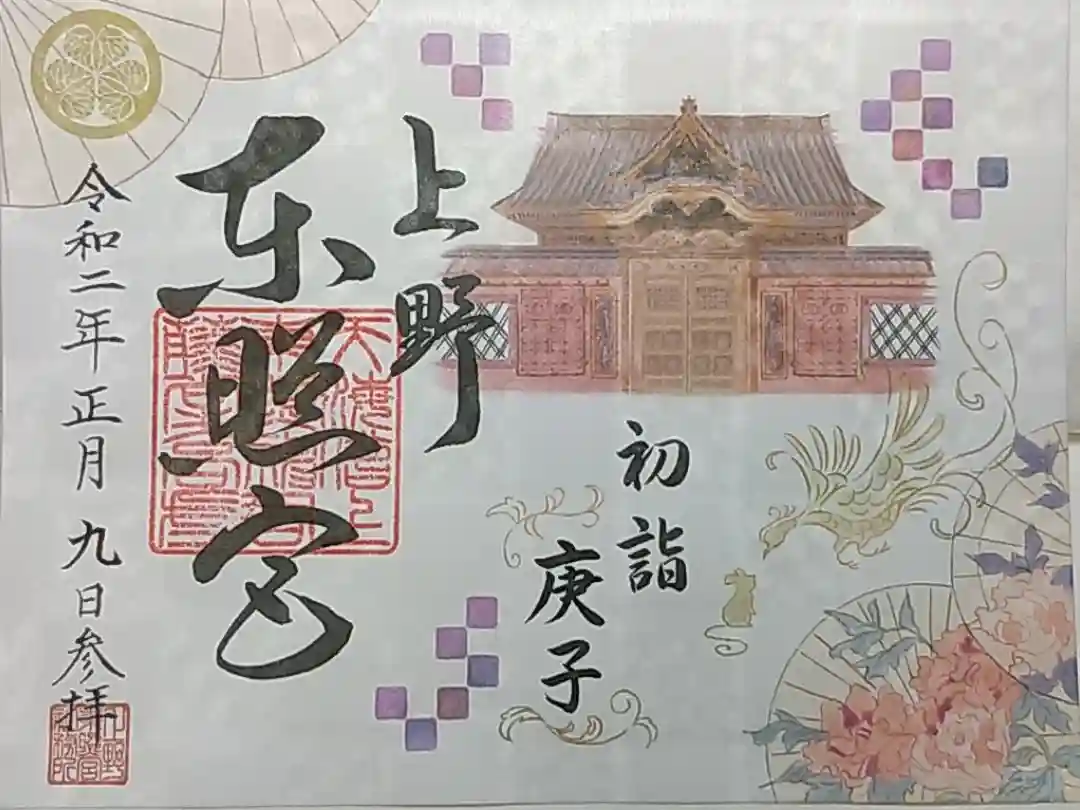 初詣
庚子
上野
东照宮
令和二年正月九日参拝